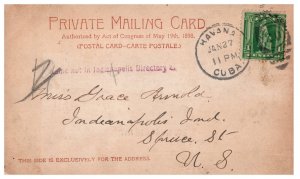 PRIVATE MAILING CARD.
Authorized by Act of Congress of May 19th, 1898.
(POSTAL CARD-CARTE POSTALE.)
HAVANA
JAN 27
11 PM
CUBA
not in Indianapolis Directory
Miss Grace Arnold.
Indianapolis Ind.
Spruce St
U. S.
THIS SIDE IS EXCLUSIVELY FOR THE ADDRESS.